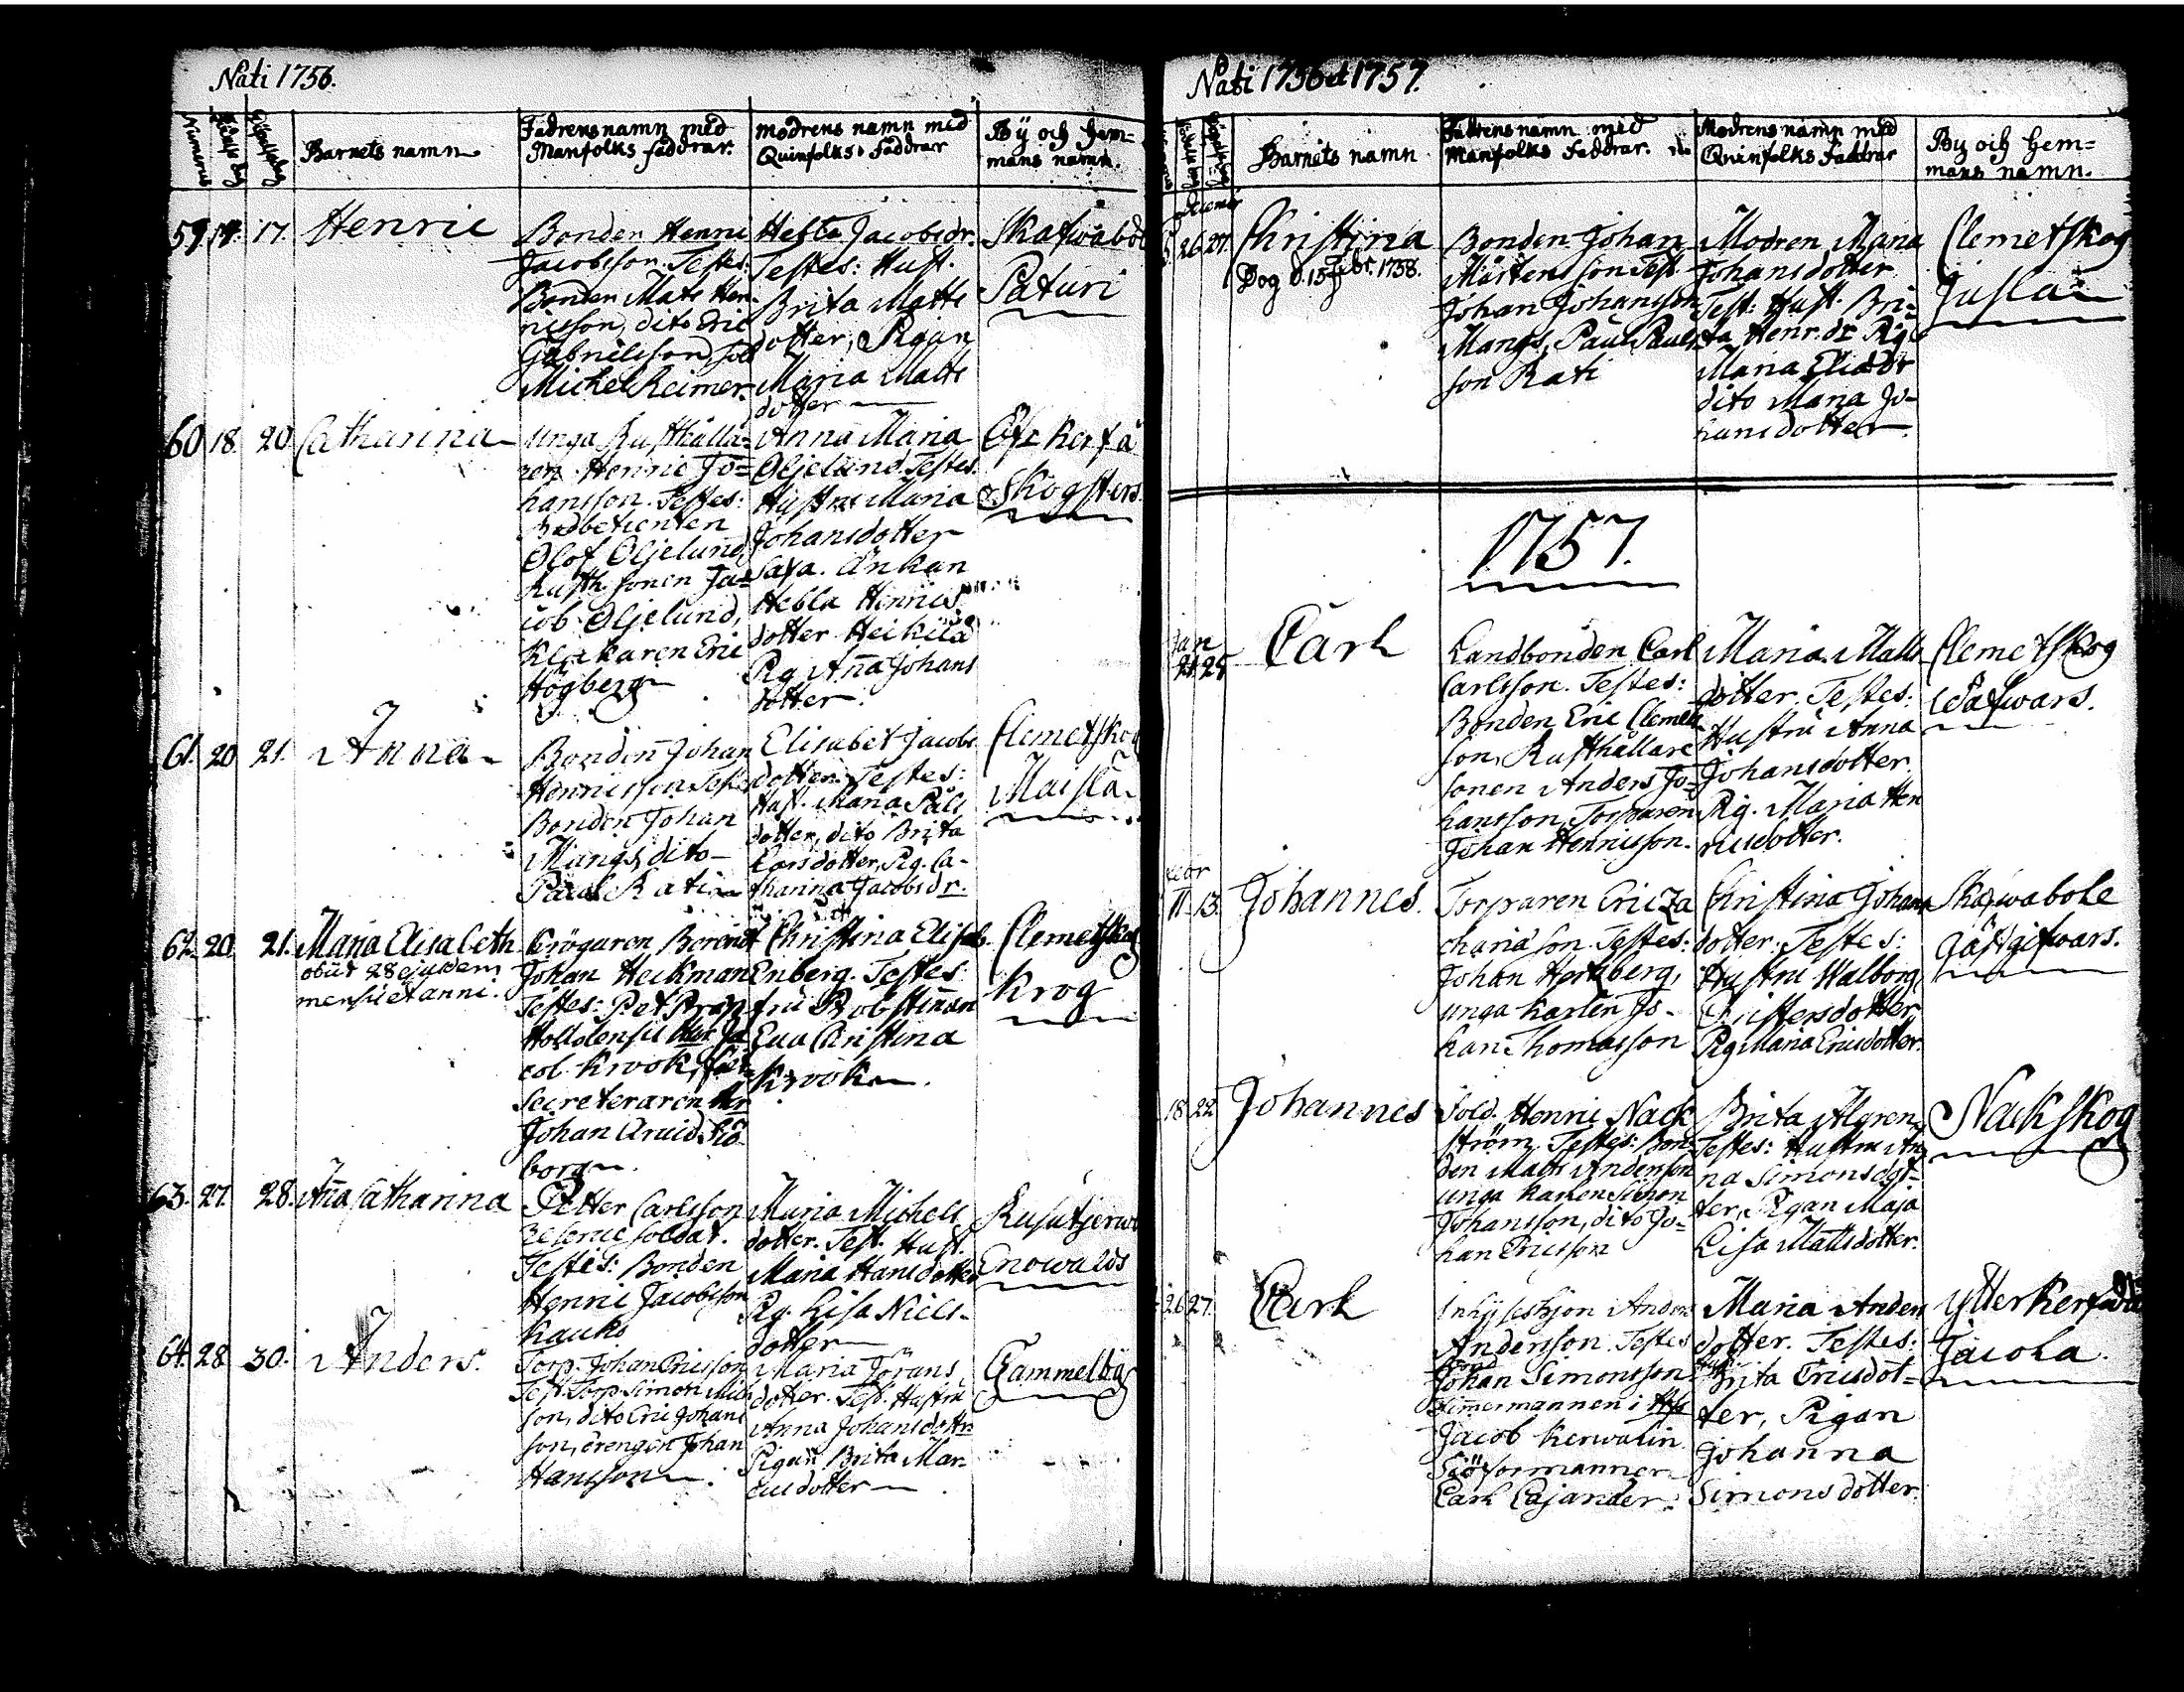 Nati 1756.
Numerus
Barnets namn
Fadrens namn med
Manfolks faddrar.
modrens namn med
Quinfolks faddrar
By och hem-
mans namn.
59 17. 17. Henric
Bonden Henric
Jacobsson. Testes:
Bonden Mats Hen-
ricsson, dito Eric
Gabrielsson, sold
Michel Reimer.
Hebla Jacobsdr.
Testes: Hust.
Brita Matts
dotter, Pigan
Maria Matts
dotter
Skafwaböl
Paturi
60 18. 20 Catharina
unga Rusthålla-
ren Henric Jo-
hansson. Testes:
Olof Oljelund,
Rusth. sonen Ja-
cob Oljelund,
Klockaren Eric
Högberg
Anna Maria
Oljelund. Testes.
Hustru Maria
Johansdotter
Saxa. Änkan
Hebla Henrics
dotter Heikilä
Pig Anna Johans
dotter.
Öfr Kerfa
Skogsters
61. 20 21. Anna
Bonden Johan
Henricsson Testes
Bonden Johan
Mångs, dito
Paul Rati
Elisabet Jacobs
dotter. Testes:
Hust. Maria Påls
dotter, dito Brita
Larsdotter, Pig. Ca-
tharina Jacobsdr.
Clemetskog
Maisla
62. 20. 21. Maria Elisabeth
obiit 28 ejusdem
mensis et anni.
Krögaren Berendt
Johan Heikman
Testes:
Hollolensis Her Ja
cob Krook,
Secreteraren her
Johan Aruid
borg
Christina Elisab.
Enberg. Testes
fru Probstinnan
Eua Christina
Krook.
Clemetskog
Krog
63. 27. 28. Anna Catharina
Petter Carlsson
reserve soldat.
Testes: Bonden
Henric Jacobsson
Kauko
Maria Michels
dotter. Test. Hust.
Maria Hansdotter
Pig. Lisa Niels-
dotter
Enowalds
64. 28 30. Anders.
Torp. Johan Ericsson
Test. Torp. Simon Mich
son, dito Eric Johans
son, drengen Johan
Hansson
Maria Jörans
dotter. Test. Hustru
Anna Johansdottr
Pigan Brita Mar-
cusdotter
Gammelby
Nati 1756 et 1757.
Barnets namn
Fadrens namn med
Manfolks faddrar.
Modrens namn med
Quinfolks faddrar
By och hem-
mans namn.
Decemb
26 27. Christina
Dog d. 15 Febr. 1758.
Bonden Johan
Mårtensson Test
Johan Johansson
Mangs, Paul Pauls
son Rati
Modren Maria
Johansdotter
Test: Hust. Bri-
ta Henr. dr Pig
Maria Elia dr
dito Maria Jo-
hansdotter.
Clemetskog
Jusla
1757.
Jan
24 25 Carl
Landbonden Carl
Carlsson. Testes:
Bonden Eric Clemets
son, Rusthållare
sonen Anders Jo-
hansson, Torparen
Johan Henricsson.
Maria Matts
dotter. Testes:
Hustru Anna
Johansdotter.
Pig. Maria Hen
ricsdotter.
Clemetskog
Löfwars.
Febr
11 13. Johannes.
Torparen Eric Za
chariä son. Testes:
Johan Hertzberg,
unga karlen Jo-
han Thomasson
Christina Johans
dotter. Testes:
Hustru Walborg
Christersdotter
Pig Maria Ericsdotter.
Skafwabole
Gästgifwars.
18. 22. Johannes
Sold. Henric Nack
ström Testes: Bon-
den Mats Andersson
unga karlen Simon
Johansson, dito Jo-
han Ericsson
Brita Algren
Testes: Hustru An-
na Simonsdot-
ter, Pigan Maja
Lisa Mattsdotter.
Nackskog
26 27. Carl
Inhyseshjon Anders
Andersson. Testes
Bond
Johan Simonsson
Timmermannen i Hfs
Jacob Kerwalin
Carl Cajander.
Maria Anders
dotter. Testes:
Hust.
Brita Ericsdot-
ter, Pigan
Johanna
Simonsdotter.
Ytterkerfwila
Jacola.